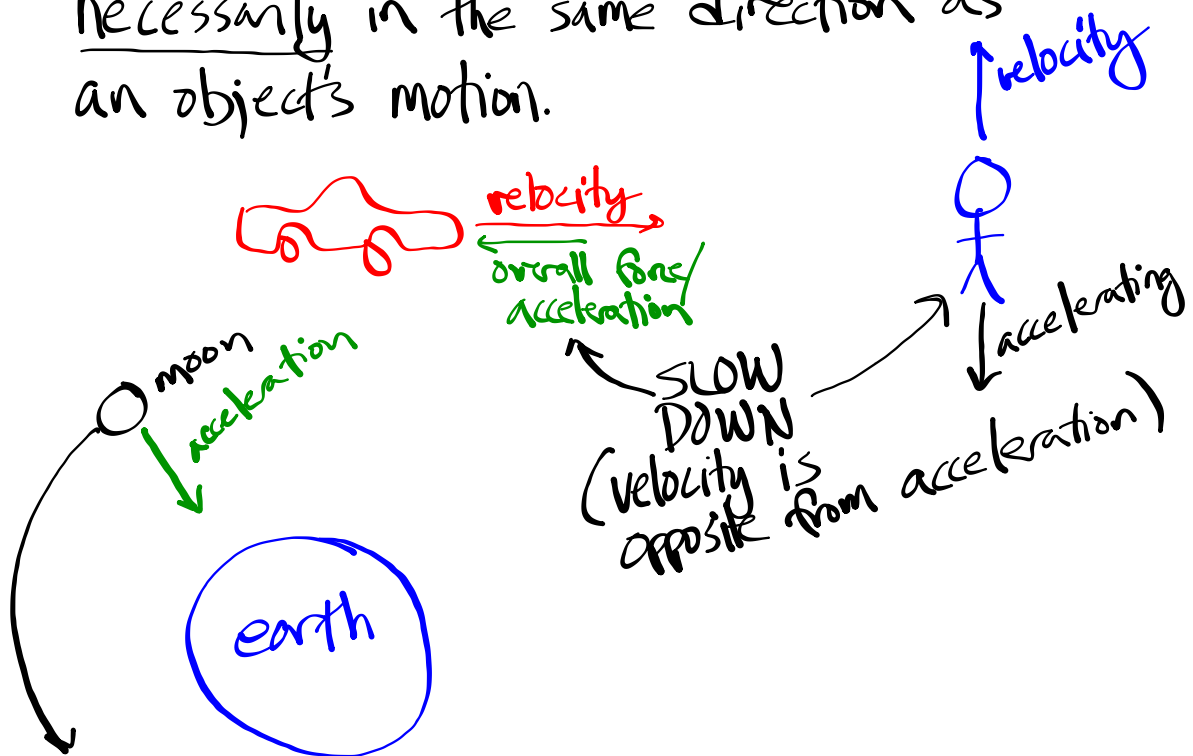 necessarily in the same direction as
an object's motion.
velocity
velocity
overall force/
acceleration
accelerating
moon
acceleration
SLOW
DOWN
(velocity is
opposite from acceleration)
earth